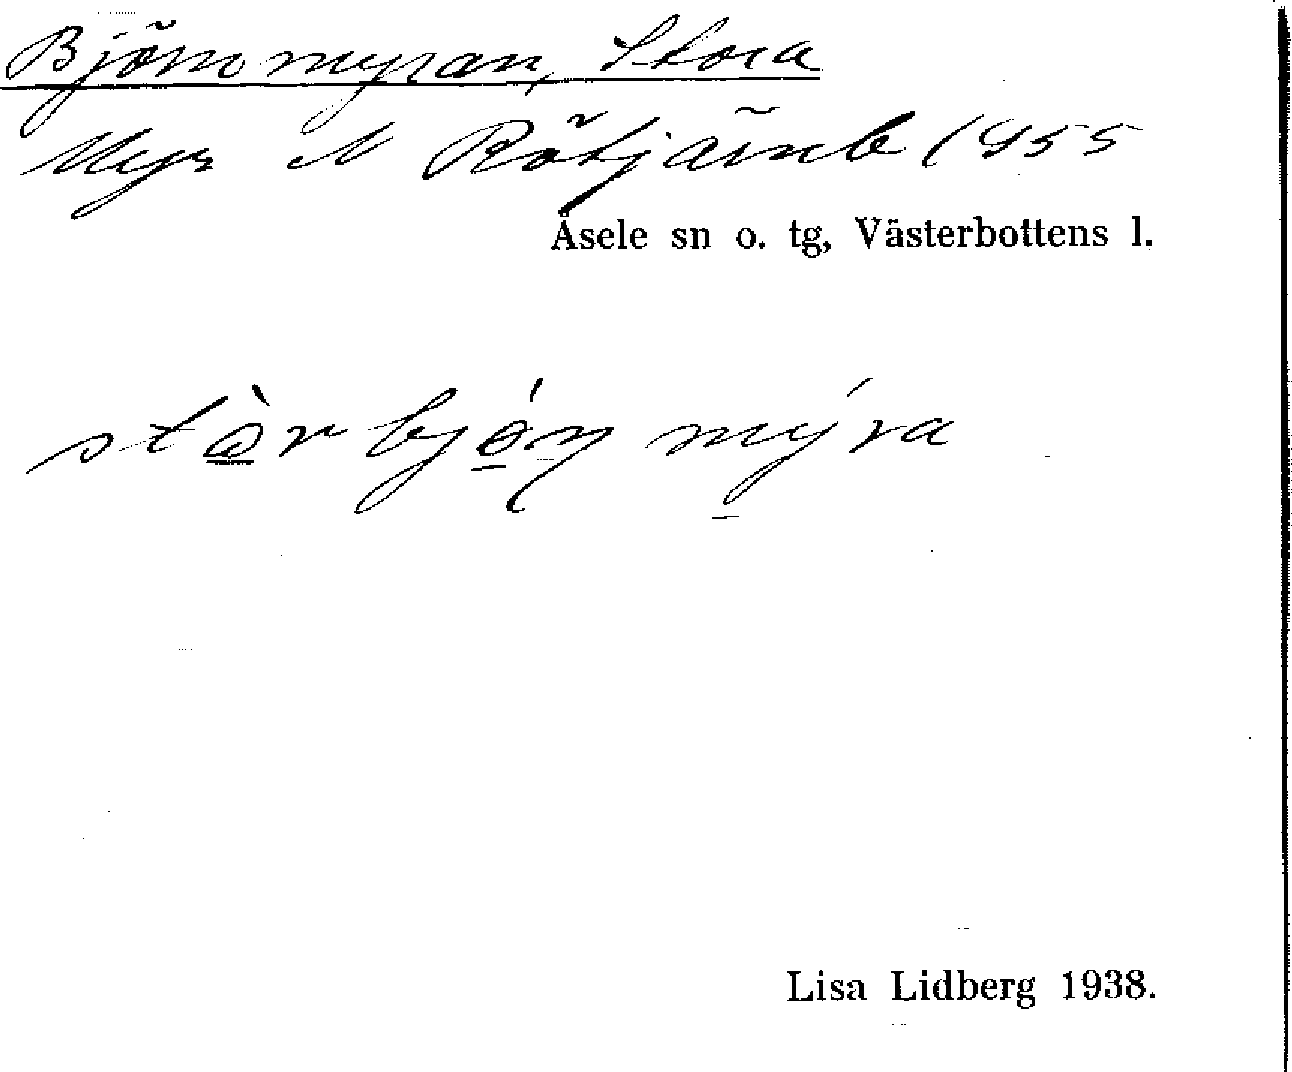 Björnmyran, Stora
Myr N Rötjärnb 1955
Åsele sn o. tg, Västerbottens l.
stò̱r bjó̱ṉ mý̱ra
Lisa Lidberg 1938.